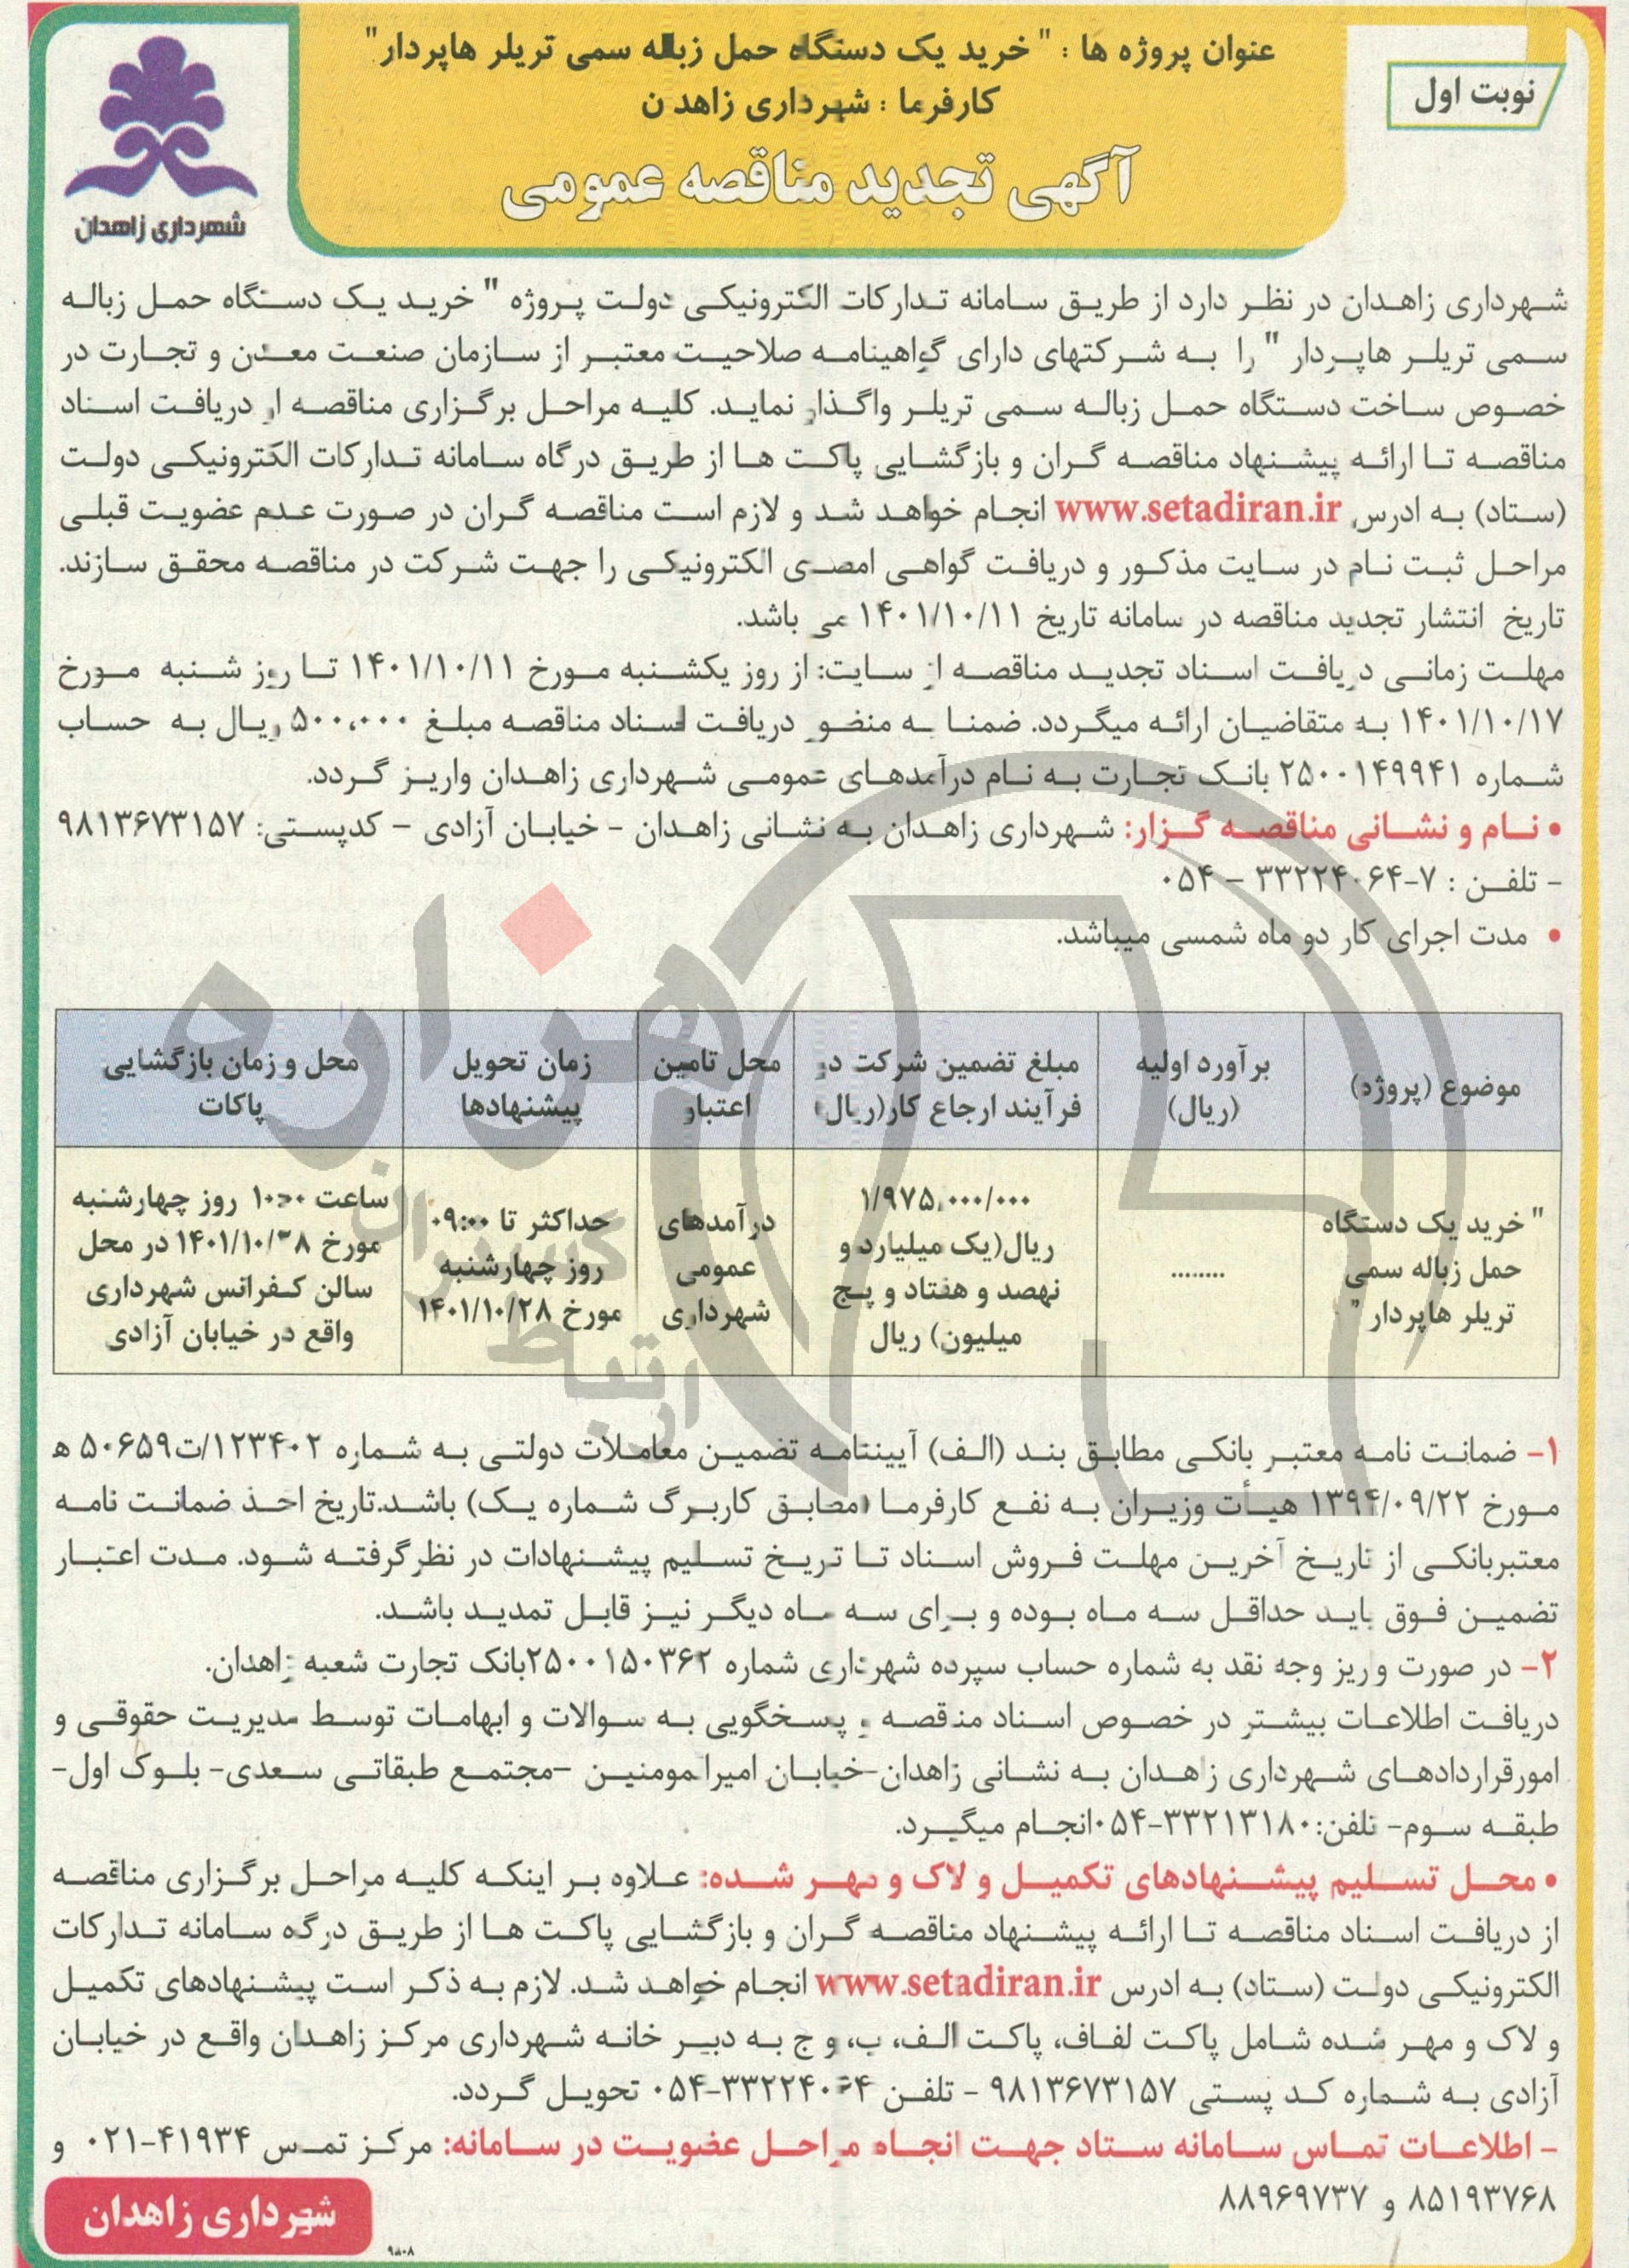 نوبت اول
عنوان پروژه ها : " خرید یک دستگاه حمل زباله سمی تریلر هاپردار"
کارفرما : شهرداری زاهدن
آگهی تجدید مناقصه عمومی
شهرداری زاهدان
شهرداری زاهدان در نظر دارد از طریق سامانه تدارکات الکترونیکی دولت پروژه " خرید یک دستگاه حمل زباله
سمی تریلر هاپردار " را به شرکتهای دارای گواهینامه صلاحیت معتبر از سازمان صنعت معدن و تجارت در
خصوص ساخت دستگاه حمل زباله سمی تریلر واگذار نماید. کلیه مراحل برگزاری مناقصه از دریافت اسناد
مناقصه تا ارائه پیشنهاد مناقصه گران و بازگشایی پاکت ها از طریق درگاه سامانه تدارکات الکترونیکی دولت
(ستاد) به ادرس www.setadiran.ir انجام خواهد شد و لازم است مناقصه گران در صورت عدم عضویت قبلی
مراحل ثبت نام در سایت مذکور و دریافت گواهی امضای الکترونیکی را جهت شرکت در مناقصه محقق سازند.
تاریخ انتشار تجدید مناقصه در سامانه تاریخ ۱۴۰۱/۱۰/۱۱ می باشد.
مهلت زمانی دریافت اسناد تجدید مناقصه از سایت: از روز یکشنبه مورخ ۱۴۰۱/۱۰/۱۱ تا روز شنبه مورخ
۱۴۰۱/۱۰/۱۷ به متقاضیان ارائه میگردد. ضمنا به منظور دریافت اسناد مناقصه مبلغ ۵۰۰,۰۰۰ ریال به حساب
شماره ۲۵۰۰۱۴۹۹۴۱ بانک تجارت به نام درآمدهای عمومی شهرداری زاهدان واریز گردد.
• نام و نشانی مناقصه گزار: شهرداری زاهدان به نشانی زاهدان - خیابان آزادی - کدپستی: ۹۸۱۳۶۷۳۱۵۷
- تلفن : ۷-۳۳۲۲۴۰۶۴ - ۰۵۴
• مدت اجرای کار دو ماه شمسی میباشد.
موضوع (پروژه)
برآورد اولیه
(ریال)
مبلغ تضمین شرکت در
فرآیند ارجاع کار(ریال)
محل تامین
اعتبار
زمان تحویل
پیشنهادها
محل و زمان بازگشایی
پاکات
" خرید یک دستگاه
حمل زباله سمی
تریلر هاپردار "
........
۱/۹۷۵,۰۰۰/۰۰۰
ریال(یک میلیارد و
نهصد و هفتاد و پنج
میلیون) ریال
درآمدهای
عمومی
شهرداری
حداکثر تا ۰۹:۰۰
روز چهارشنبه
مورخ ۱۴۰۱/۱۰/۲۸
ساعت ۱۰:۰۰ روز چهارشنبه
مورخ ۱۴۰۱/۱۰/۲۸ در محل
سالن کنفرانس شهرداری
واقع در خیابان آزادی
۱- ضمانت نامه معتبر بانکی مطابق بند (الف) آییننامه تضمین معاملات دولتی به شماره ۱۲۳۴۰۲/ت۵۰۶۵۹ ه
مورخ ۱۳۹۴/۰۹/۲۲ هیأت وزیران به نفع کارفرما (مطابق کاربرگ شماره یک) باشد.تاریخ اخذ ضمانت نامه
معتبربانکی از تاریخ آخرین مهلت فروش اسناد تا تاریخ تسلیم پیشنهادات در نظرگرفته شود. مدت اعتبار
تضمین فوق باید حداقل سه ماه بوده و برای سه ماه دیگر نیز قابل تمدید باشد.
۲- در صورت واریز وجه نقد به شماره حساب سپرده شهرداری شماره ۲۵۰۰۱۵۰۳۶۲بانک تجارت شعبه زاهدان.
دریافت اطلاعات بیشتر در خصوص اسناد مناقصه و پاسخگویی به سوالات و ابهامات توسط مدیریت حقوقی و
امورقراردادهای شهرداری زاهدان به نشانی زاهدان-خیابان امیرالمومنین -مجتمع طبقاتی سعدی- بلوک اول-
طبقه سوم- تلفن:۳۳۲۱۳۱۸۰-۰۵۴انجام میگیرد.
• محل تسلیم پیشنهادهای تکمیل و لاک و مهر شده: علاوه بر اینکه کلیه مراحل برگزاری مناقصه
از دریافت اسناد مناقصه تا ارائه پیشنهاد مناقصه گران و بازگشایی پاکت ها از طریق درگاه سامانه تدارکات
الکترونیکی دولت (ستاد) به ادرس www.setadiran.ir انجام خواهد شد. لازم به ذکر است پیشنهادهای تکمیل
و لاک و مهر شده شامل پاکت لفاف، پاکت الف، ب، و ج به دبیر خانه شهرداری مرکز زاهدان واقع در خیابان
آزادی به شماره کد پستی ۹۸۱۳۶۷۳۱۵۷ - تلفن ۳۳۲۲۴۰۶۴-۰۵۴ تحویل گردد.
- اطلاعات تماس سامانه ستاد جهت انجام مراحل عضویت در سامانه: مرکز تماس ۴۱۹۳۴-۰۲۱ و
۸۵۱۹۳۷۶۸ و ۸۸۹۶۹۷۳۷
شهرداری زاهدان
۹۸۰۸
هزاره
گستران
ارتباط